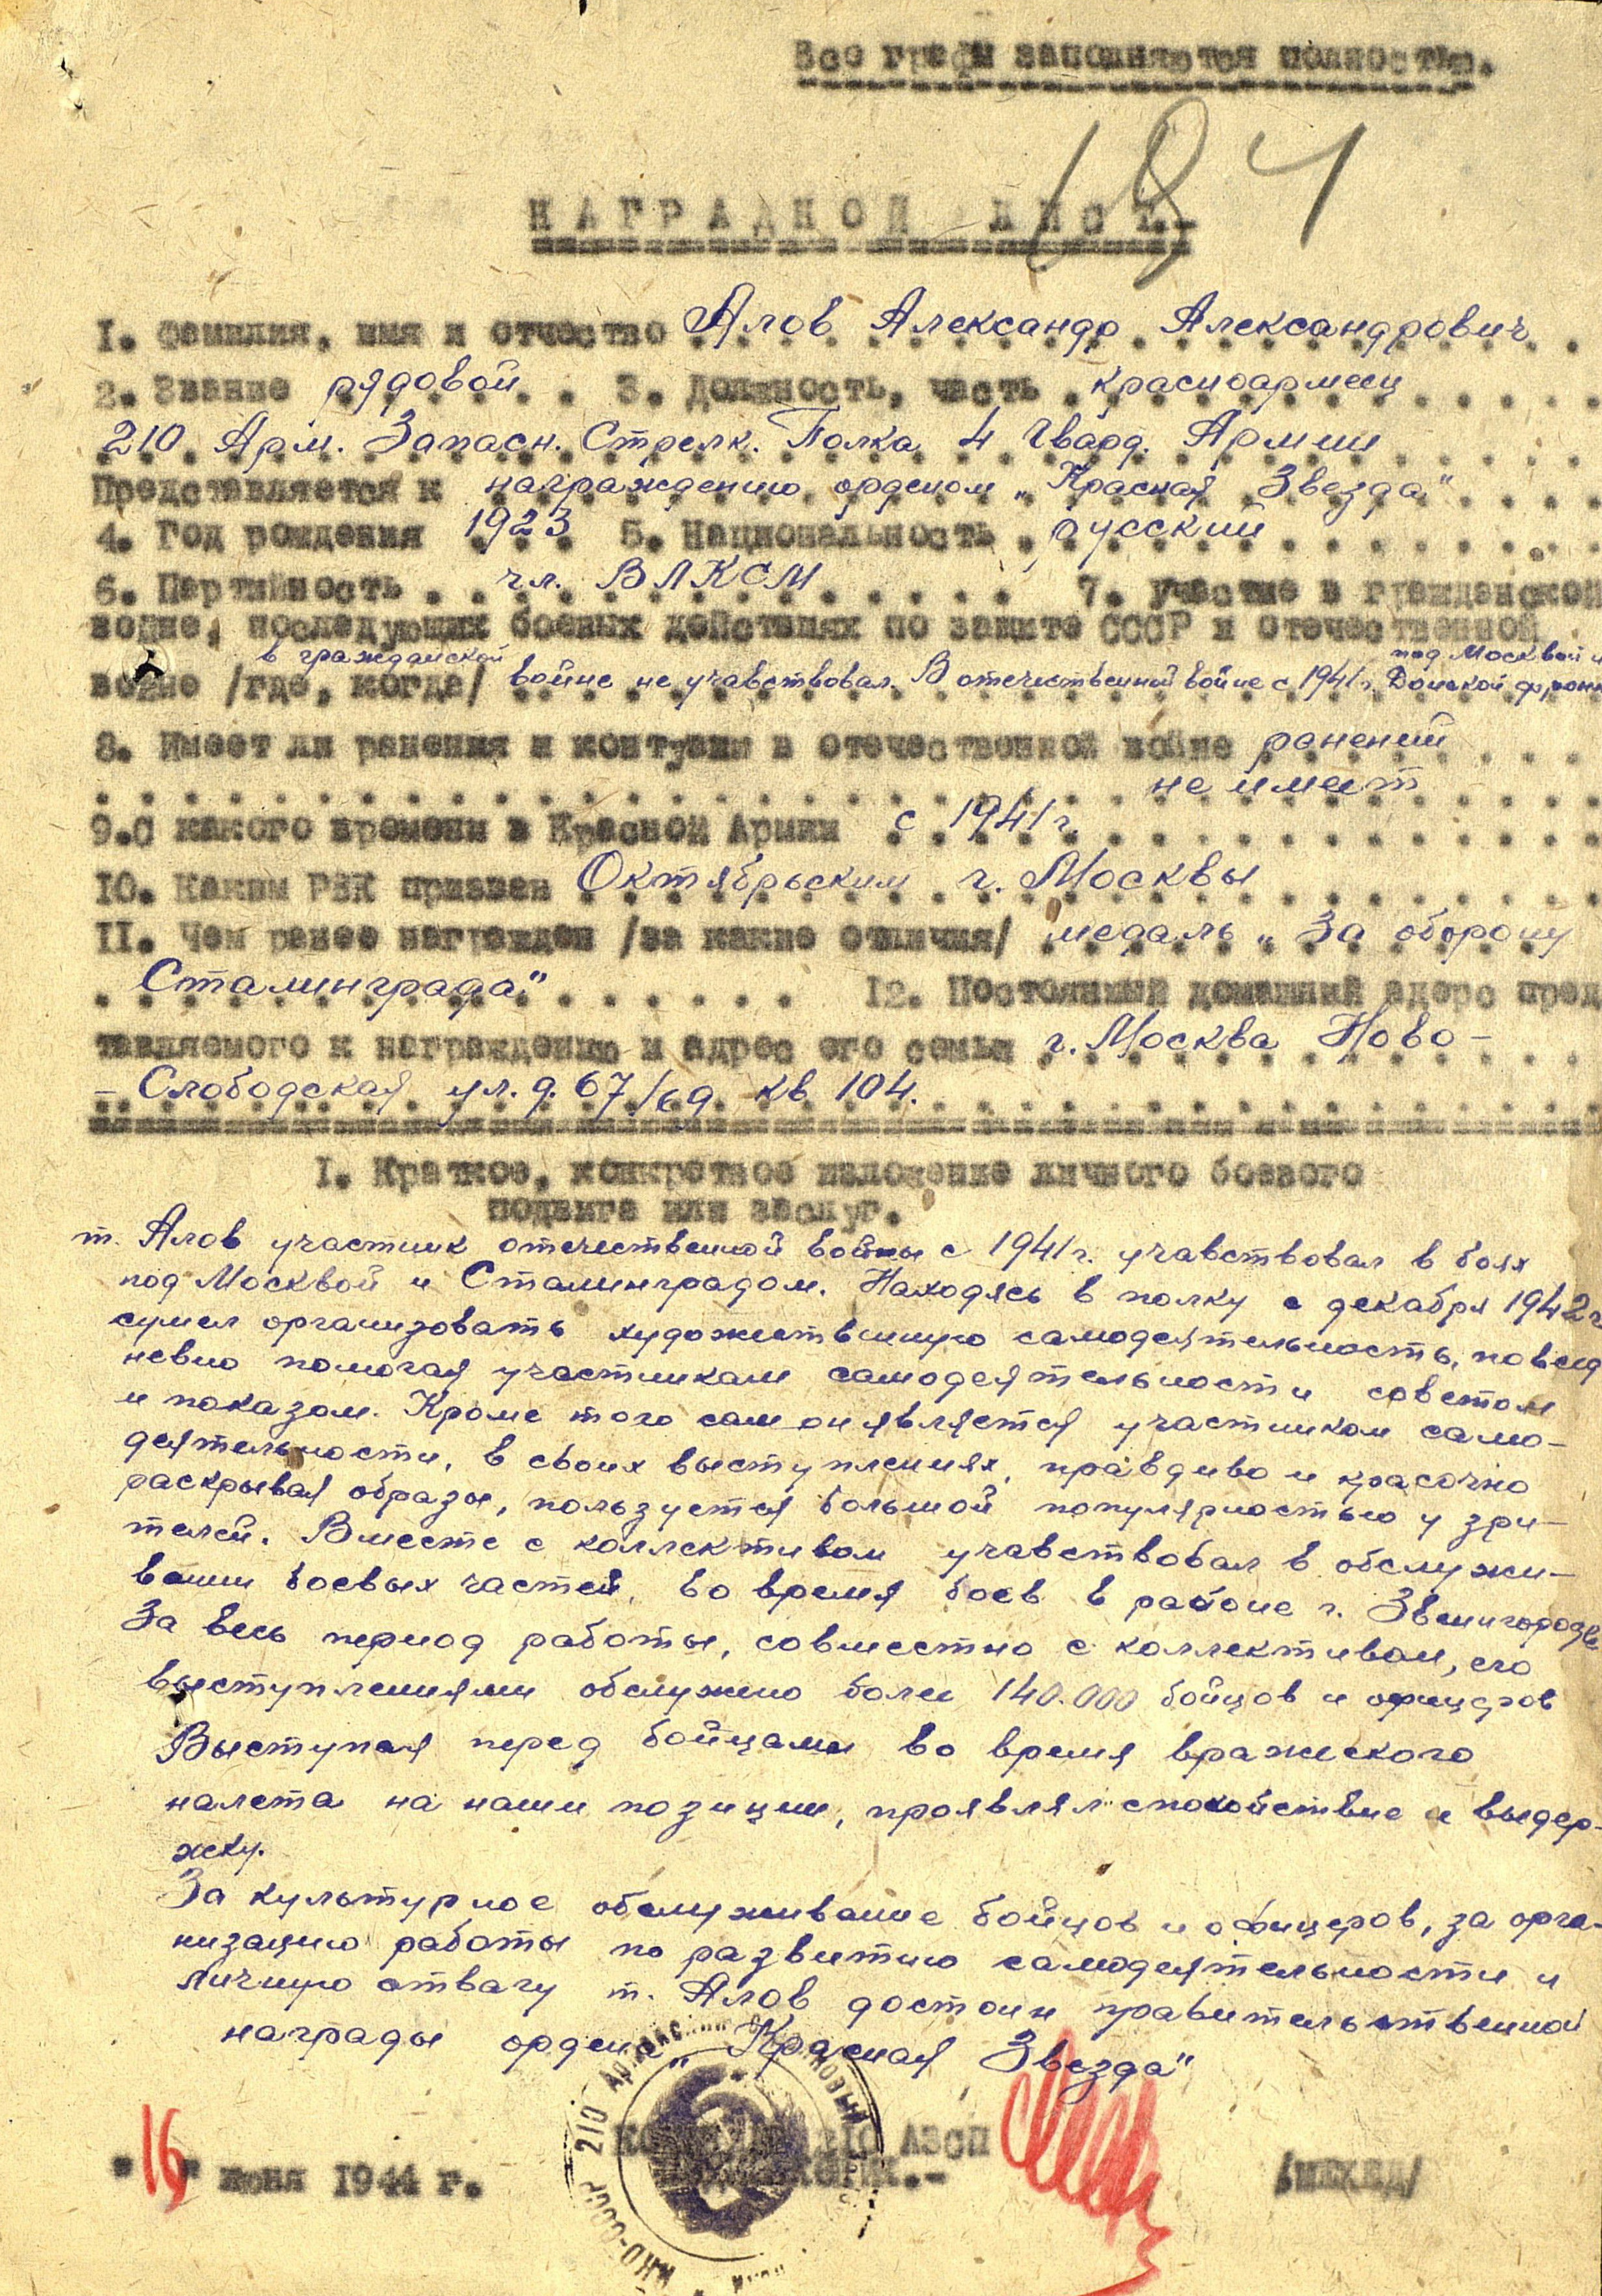 Все графы заполняются полностью.
184
НАГРАДНОЙ ЛИСТ.-
I. Фамилия, имя и отчество Алов Александр Александрович
2. Звание рядовой 3. Должность, часть красноармеец
210 Арм. Запасн. Стрелк. Полка 4 Гвард. Армии
Представляется к награждению орденом „Красная Звезда"
4. Год рождения 1923 5. Национальность русский
6. Партийность чл. ВЛКСМ 7. участие в гражданской
войне, последующих боевых действиях по защите СССР и отечественной
в гражданской под Москвой и
войне /где, когда/ войне не учавствовал. В отечественной войне с 1941 г. Донской фронт
8. Имеет ли ранения и контузии в отечественной войне ранений
не имеет
9.С какого времени в Красной Армии с 1941 г.
10. Каким РВК призван Октябрьским г. Москвы
II. Чем ранее награжден /за какие отличия/ медаль „За оборону
Сталинграда" 12. Постоянный домашний адерс пред
тавляемого к награждению и адрес его семьи г. Москва Ново-
- Слободская ул. д. 67/69 кв 104.
I. Краткое, конкретное изложение личного боевого
подвига или заслуг.
т. Алов участник отечественной войны с 1941 г. учавствовал в боях
под Москвой и Сталинградом. Находясь в полку с декабря 1942 г
сумел организовать художественную самодеятельность, повсед
невно помогая участникам самодеятельности советом
и показом. Кроме того сам он является участником само-
деятельности, в своих выступлениях, правдиво и красочно
раскрывая образы, пользуется большой популярностью у зри-
телей. Вместе с коллективом учавствовал в обслужи-
вании боевых частей, во время боев в районе г. Звенигородка
За весь период работы, совместно с коллективом, его
выступлениями обслужено более 140.000 бойцов и офицеров
Выступая перед бойцами во время вражеского
налета на наши позиции, проявлял спокойствие и выдер-
жку.
За культурное обслуживание бойцов и офицеров, за орга-
низацию работы по развитию самодеятельности и
личную отвагу т. Алов достоин правительственной
награды ордена „Красная Звезда"
210
НКО-СССР
АЗСП
"16" июня 1944 г. /ШЕХЕД/